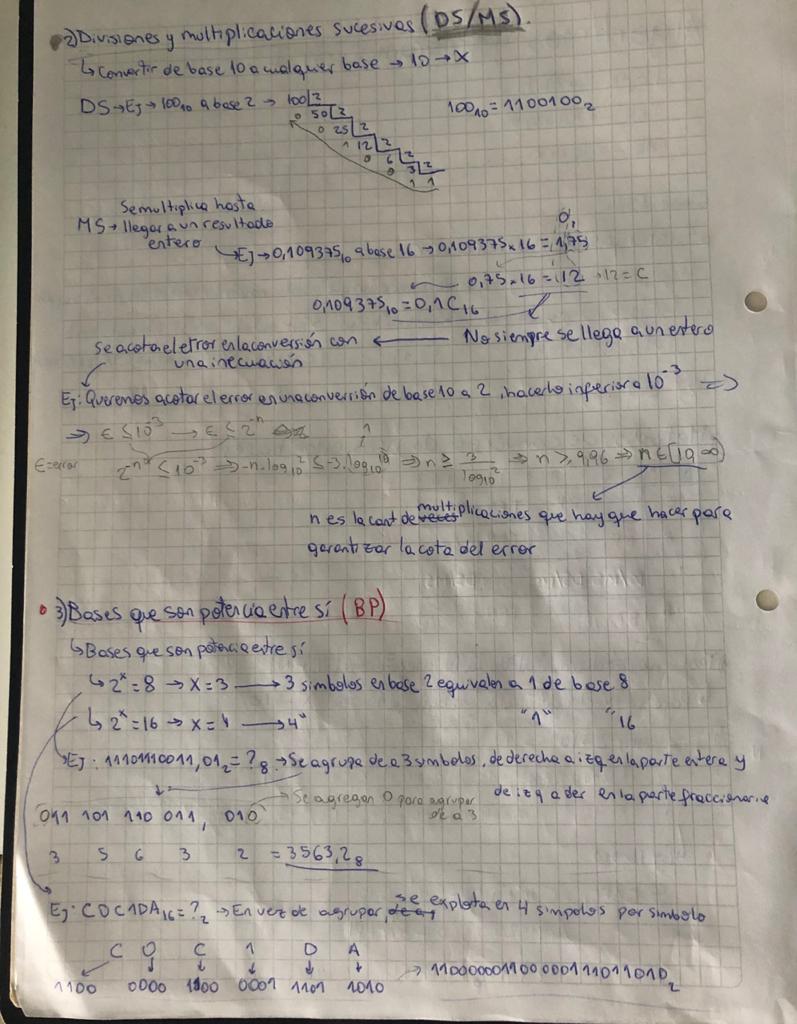 2) Divisiones y multiplicaciones sucesivas (DS/MS).
↳ Convertir de base 10 a cualquier base → 10 → X
DS → Ej → 100₁₀ a base 2 → 100 |2
100₁₀ = 1100100₂
0 50 |2
0 25 |2
1 12 |2
0 6 |2
0 3 |2
1 1
Se multiplica hasta
MS → llegar a un resultado
entero
0,
↳ Ej → 0,109375₁₀ a base 16 → 0,109375 x 16 = 1,75
0,75 x 16 = 12 → 12 = C
0,109375₁₀ = 0,1C₁₆
Se acota el error en la conversión con ← No siempre se llega a un entero
una inecuación
Ej: Queremos acotar el error en una conversión de base 10 a 2, hacerlo inferior a 10⁻³ ⇒
⇒ ϵ ≤ 10⁻³ → ϵ ≤ 2⁻ⁿ
1
ϵ = error
2⁻ⁿ ≤ 10⁻³ ⇒ -n. log₁₀2 ≤ -3. log₁₀10 ⇒ n ≥ 3/log₁₀2 ⇒ n ≥ 9,96 ⇒ n ∈ [10, ∞)
n es la cant de multiplicaciones que hay que hacer para
garantizar la cota del error
3) Bases que son potencia entre sí (BP)
↳ Bases que son potencia entre sí
↳ 2ˣ = 8 → x = 3 → 3 simbolos en base 2 equivalen a 1 de base 8
↳ 2ˣ = 16 → x = 4 → 4 " "1" " 16
↳ Ej: 11101110011,01₂ = ?₈ → Se agrupa de a 3 symbolos, de derecha a izq en la parte entera y
de izq a der en la parte fraccionaria
→ Se agregan 0 para agrupar
de a 3
011 101 110 011, 010
3 5 6 3 2 = 3563,2₈
Ej: C0C1DA₁₆ = ?₂ → En vez de agrupar, se explota en 4 simbolos por simbolo
C 0 C 1 D A
1100 0000 1100 0001 1101 1010 → 110000001100000111011010₂